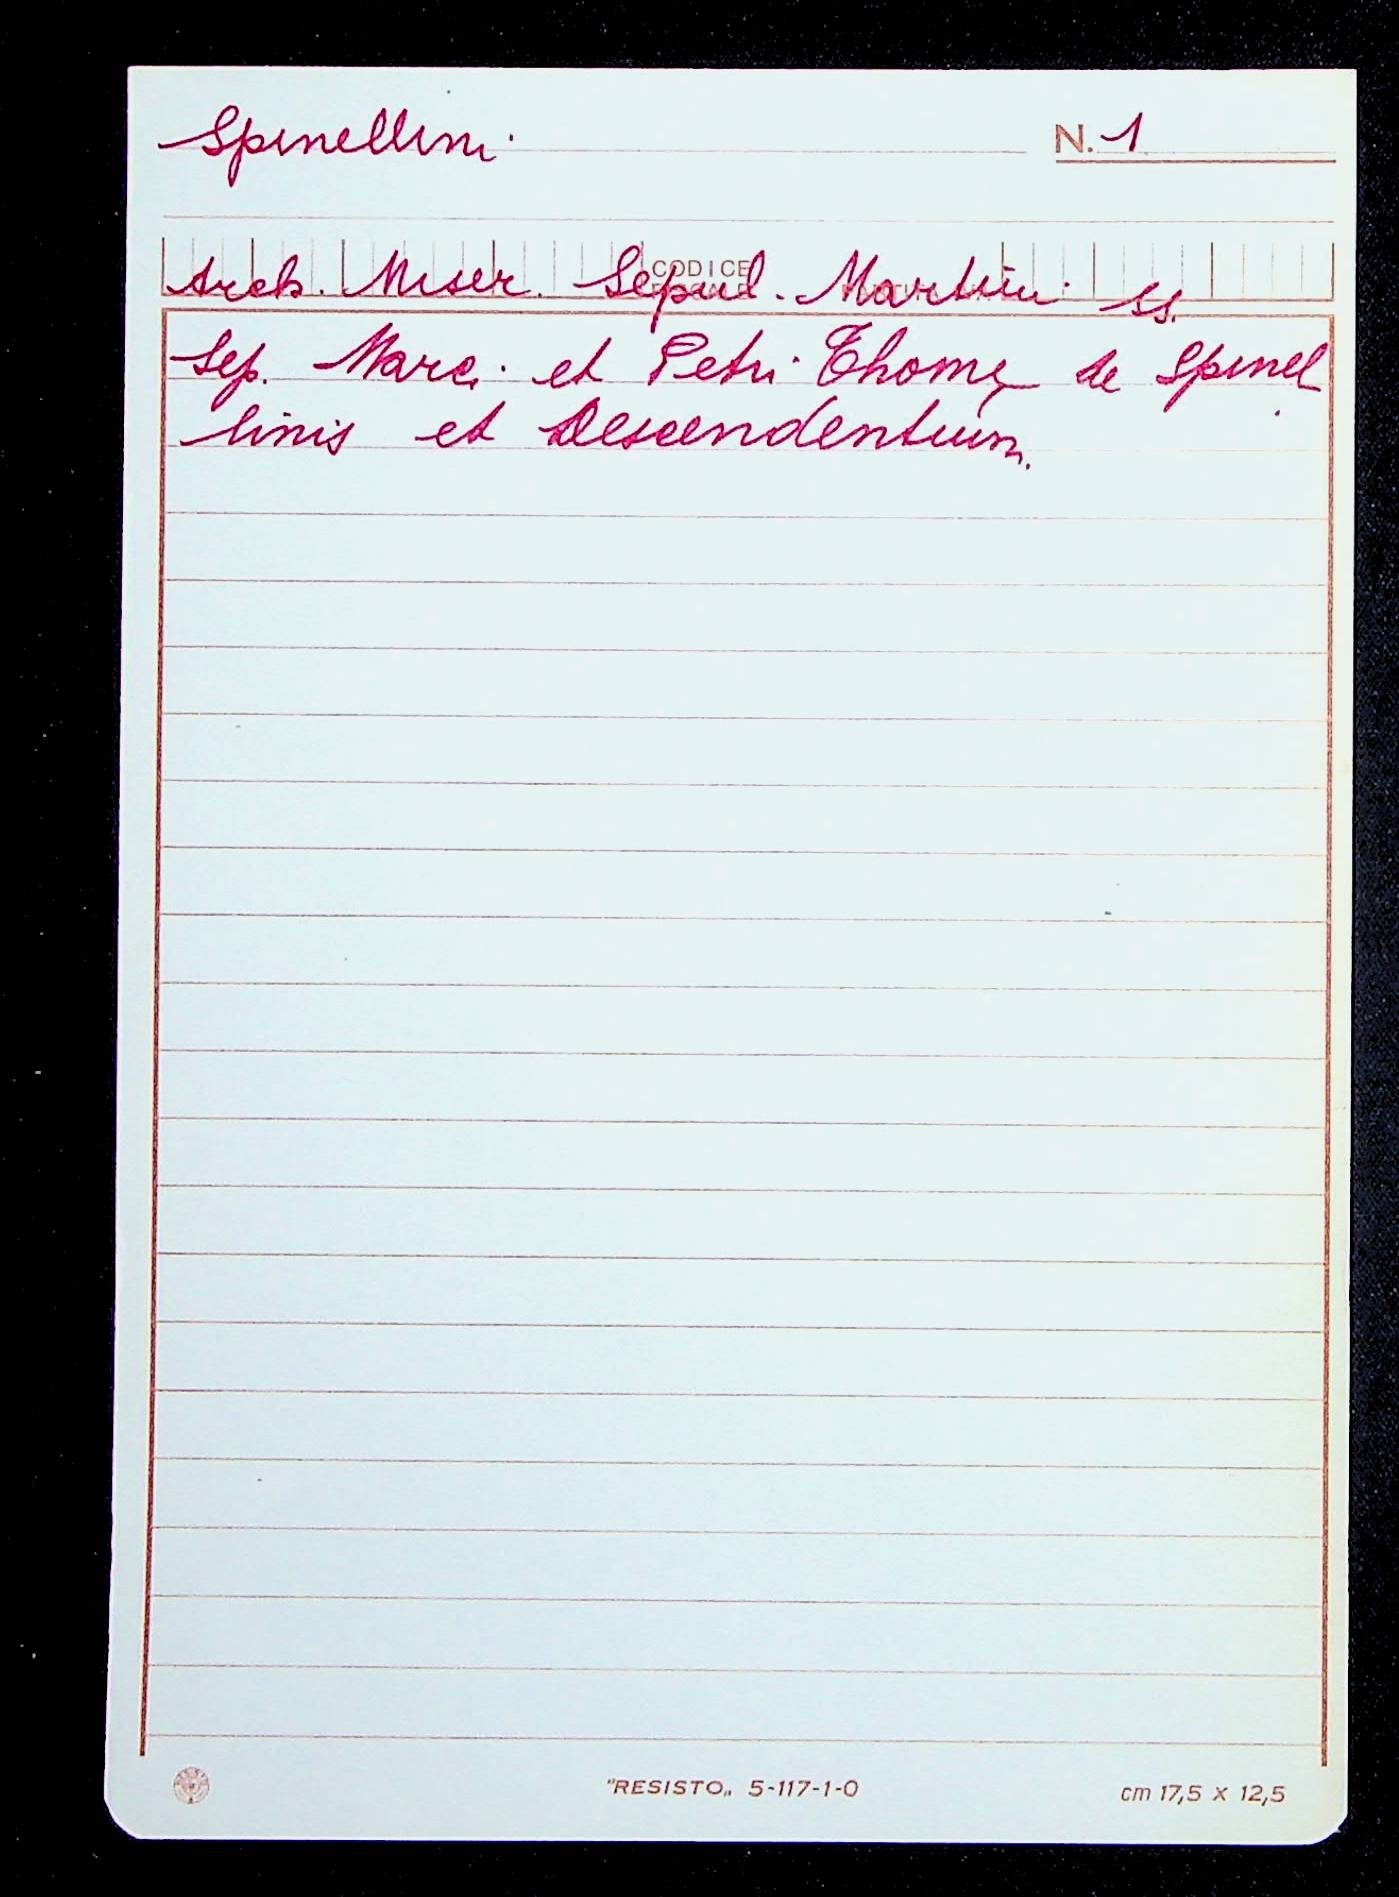 Spinellini
N. 1
CODICE
Arch. Miser. Sepul. Martin. ss.
Sep. Marc. et Petri Thomę de Spinel
linis et Descendentium.
"RESISTO„ 5-117-1-0
cm 17,5 x 12,5